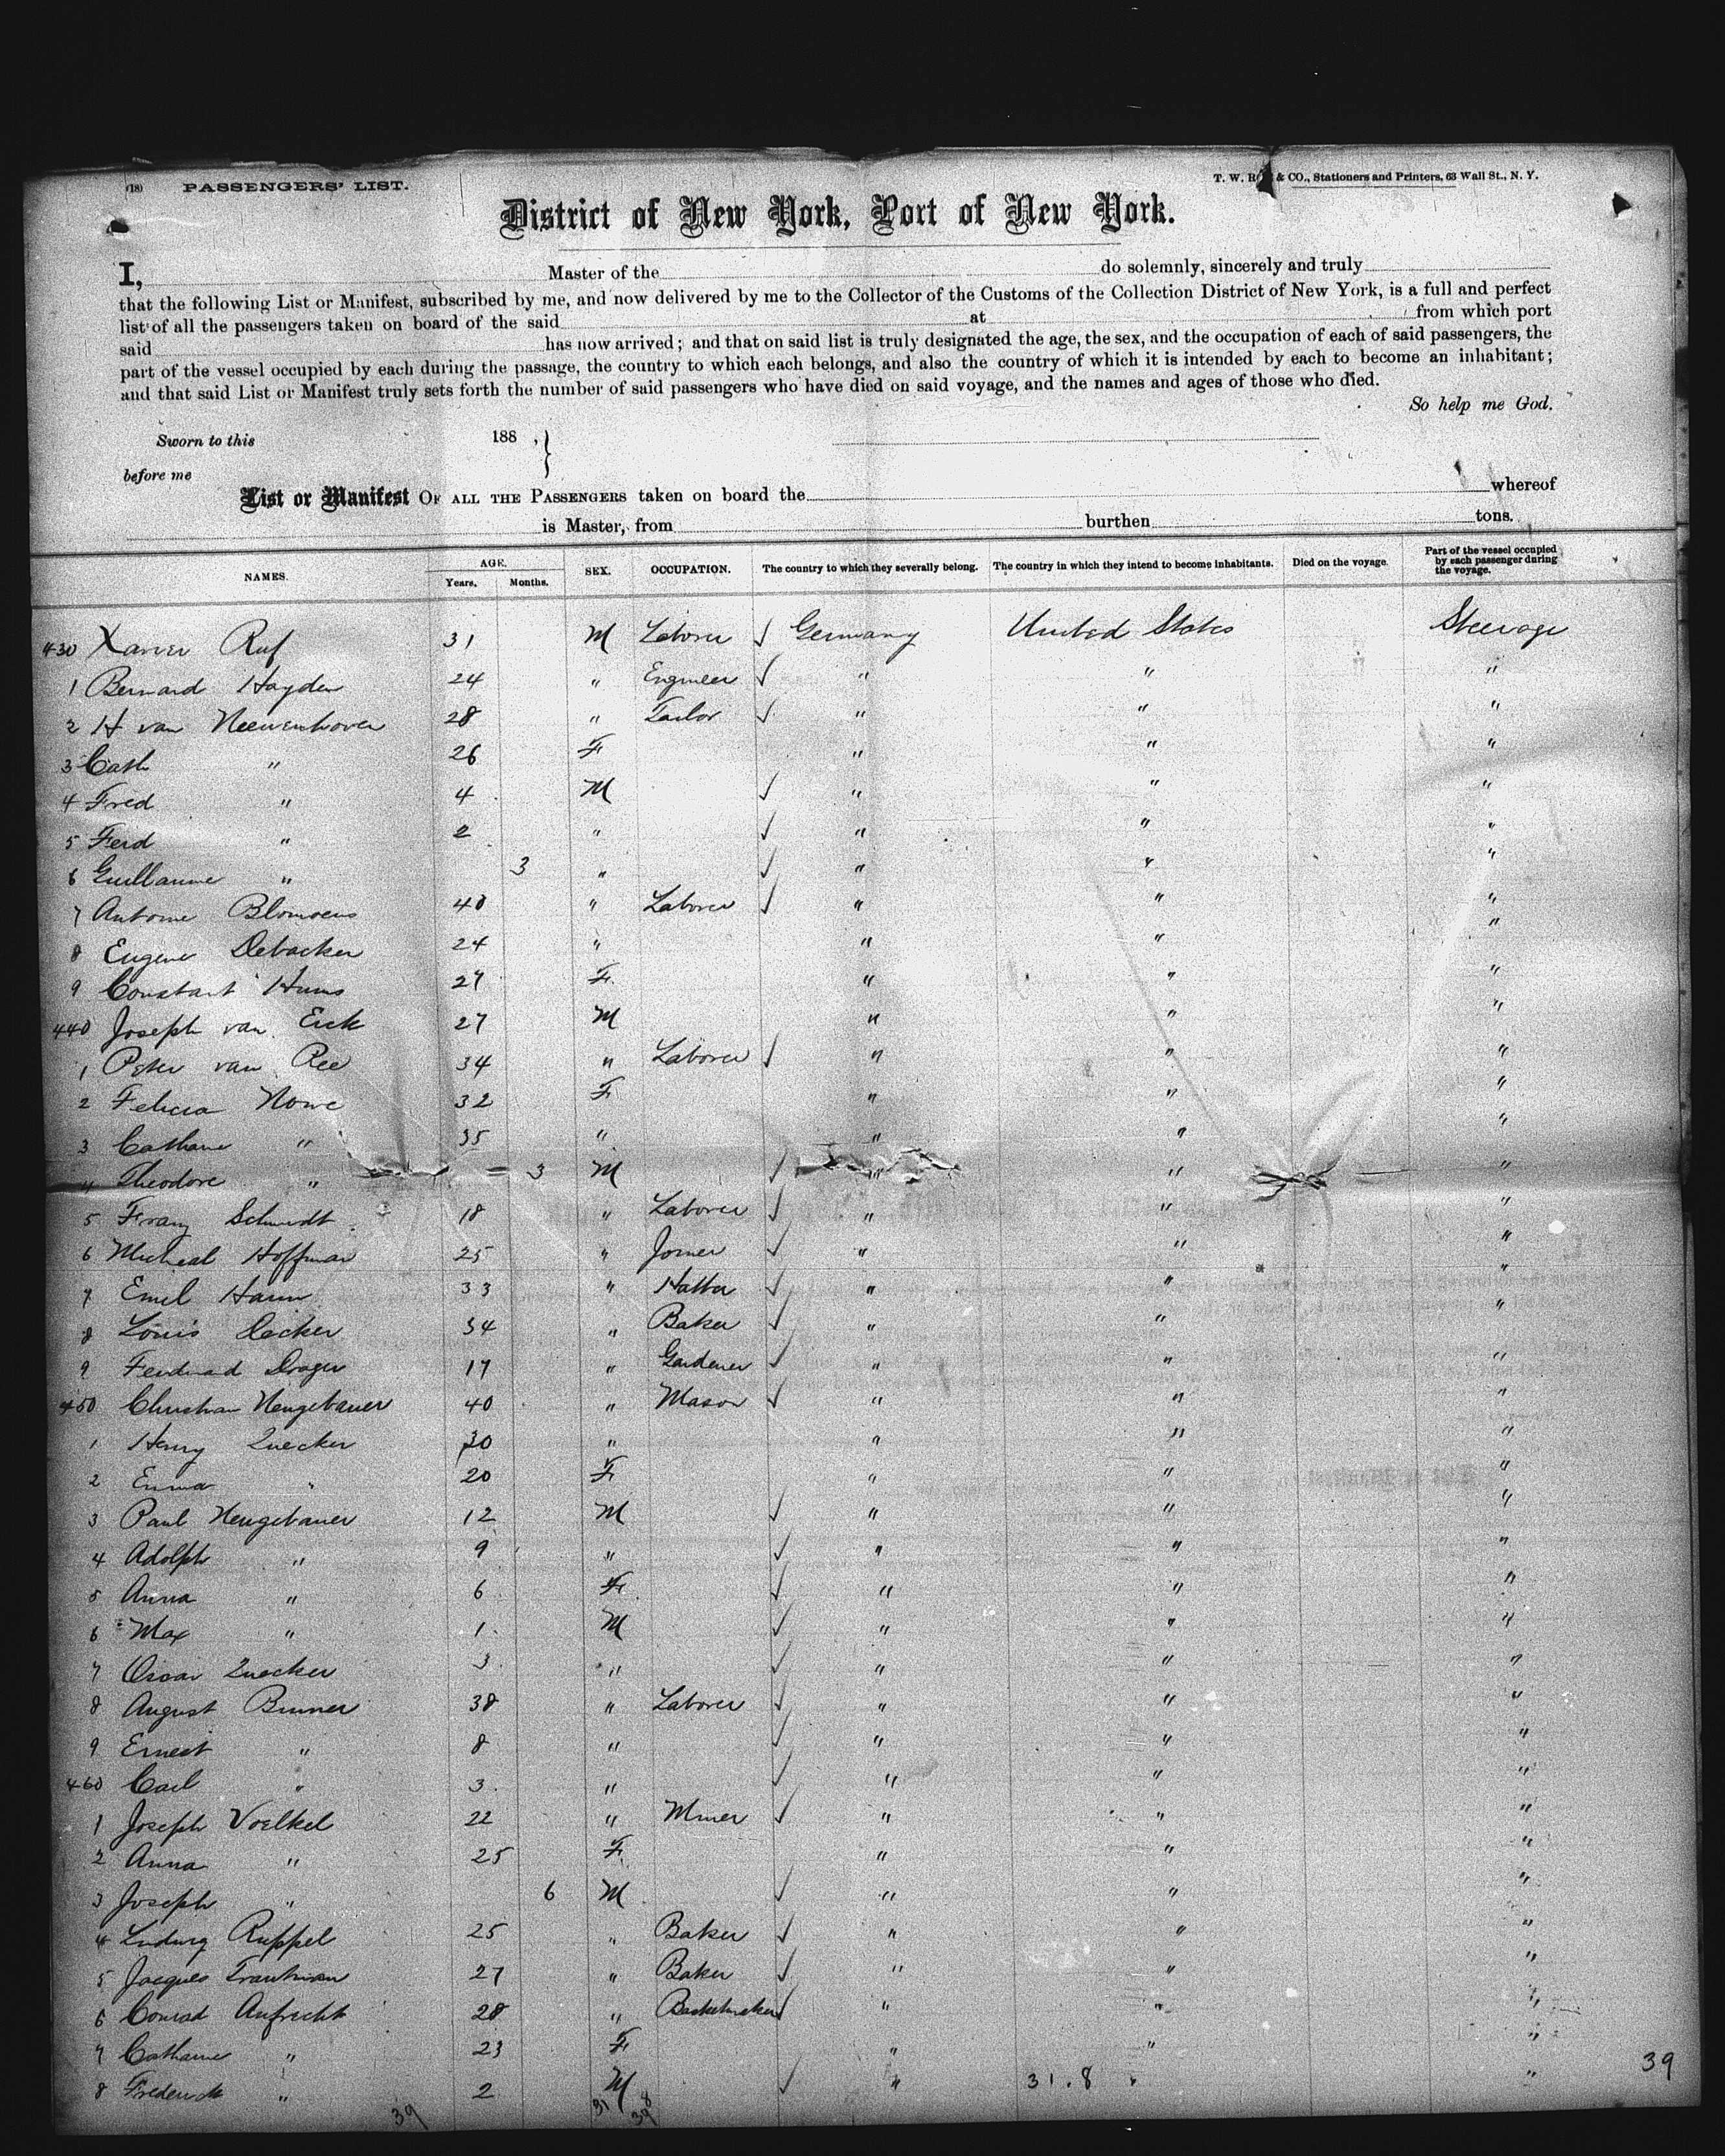 (18) PASSENGERS' LIST.
T. W. & CO., Stationers and Printers, 63 Wall St., N. Y.
District of New York, Port of New York.
I, Master of the do solemnly, sincerely and truly
that the following List or Manifest, subscribed by me, and now delivered by me to the Collector of the Customs of the Collection District of New York, is a full and perfect
list of all the passengers taken on board of the said at from which port
said has now arrived; and that on said list is truly designated the age, the sex, and the occupation of each of said passengers, the
part of the vessel occupied by each during the passage, the country to which each belongs, and also the country of which it is intended by each to become an inhabitant;
and that said List or Manifest truly sets forth the number of said passengers who have died on said voyage, and the names and ages of those who died.
So help me God.
Sworn to this 188 , }
before me
List or Manifest OF ALL THE PASSENGERS taken on board the whereof
is Master, from burthen tons.
NAMES. AGE. Years. Months. SEX. OCCUPATION. The country to which they severally belong. The country in which they intend to become inhabitants. Died on the voyage. Part of the vessel occupied by each passenger during the voyage.
430 Xavier Ruf 31 M Laborer √ Germany United States Steerage
1 Bernard Hayden 24 " Engineer √ " " "
2 H van Neewenhoven 28 " Tailor √ " " "
3 Cath " 26 F " " "
4 Fred " 4 M √ " " "
5 Ferd " 2 " √ " " "
6 Guillaume " 3 " √ " " "
7 Antoine 40 " Laborer √ " " "
8 Eugene Debacker 24 " " " "
9 Constant 27 F. " " "
440 Joseph van Eick 27 M " " "
1 Peter van Ree 34 " Laborer √ " " "
2 Felicia Nowe 32 F " " "
3 Catharine " 35 " " " "
4 Theodore " 3 M √ " " "
5 Franz Schmidt 18 " Laborer √ " " "
6 Micheal Hoffman 25 " Joiner √ " " "
7 Emil Hamm 33 " Hatter √ " " "
8 Louis Decker 34 " Baker √ " " "
9 Ferdinad Drager 17 " Gardener √ " " "
450 Christian Neugebauer 40 " Mason √ " " "
1 Henry Quecker 30 " " " "
2 Emma " 20 F " " "
3 Paul Neugebauer 12 M √ " " "
4 Adolph " 9 " √ " " "
5 Anna " 6 F √ " " "
6 Max " 1 M √ " " "
7 Oscar Quecker 3 " √ " " "
8 August Brunner 38 " Laborer √ " " "
9 Ernest " 8 " √ " " "
460 Carl " 3 " √ " " "
1 Joseph Voelkel 22 " Miner √ " " "
2 Anna " 25 F. " " "
3 Joseph " 6 M √ " " "
4 Ludwig Ruppel 25 " Baker √ " " "
5 Jacques Trautman 27 " Baker √ " " "
6 Conrad Aufrecht 28 " Basketmaker √ " " "
7 Catharine " 23 F " " "
8 Frederick " 2 M √ " 31.8 " "
39
39 31 8 39